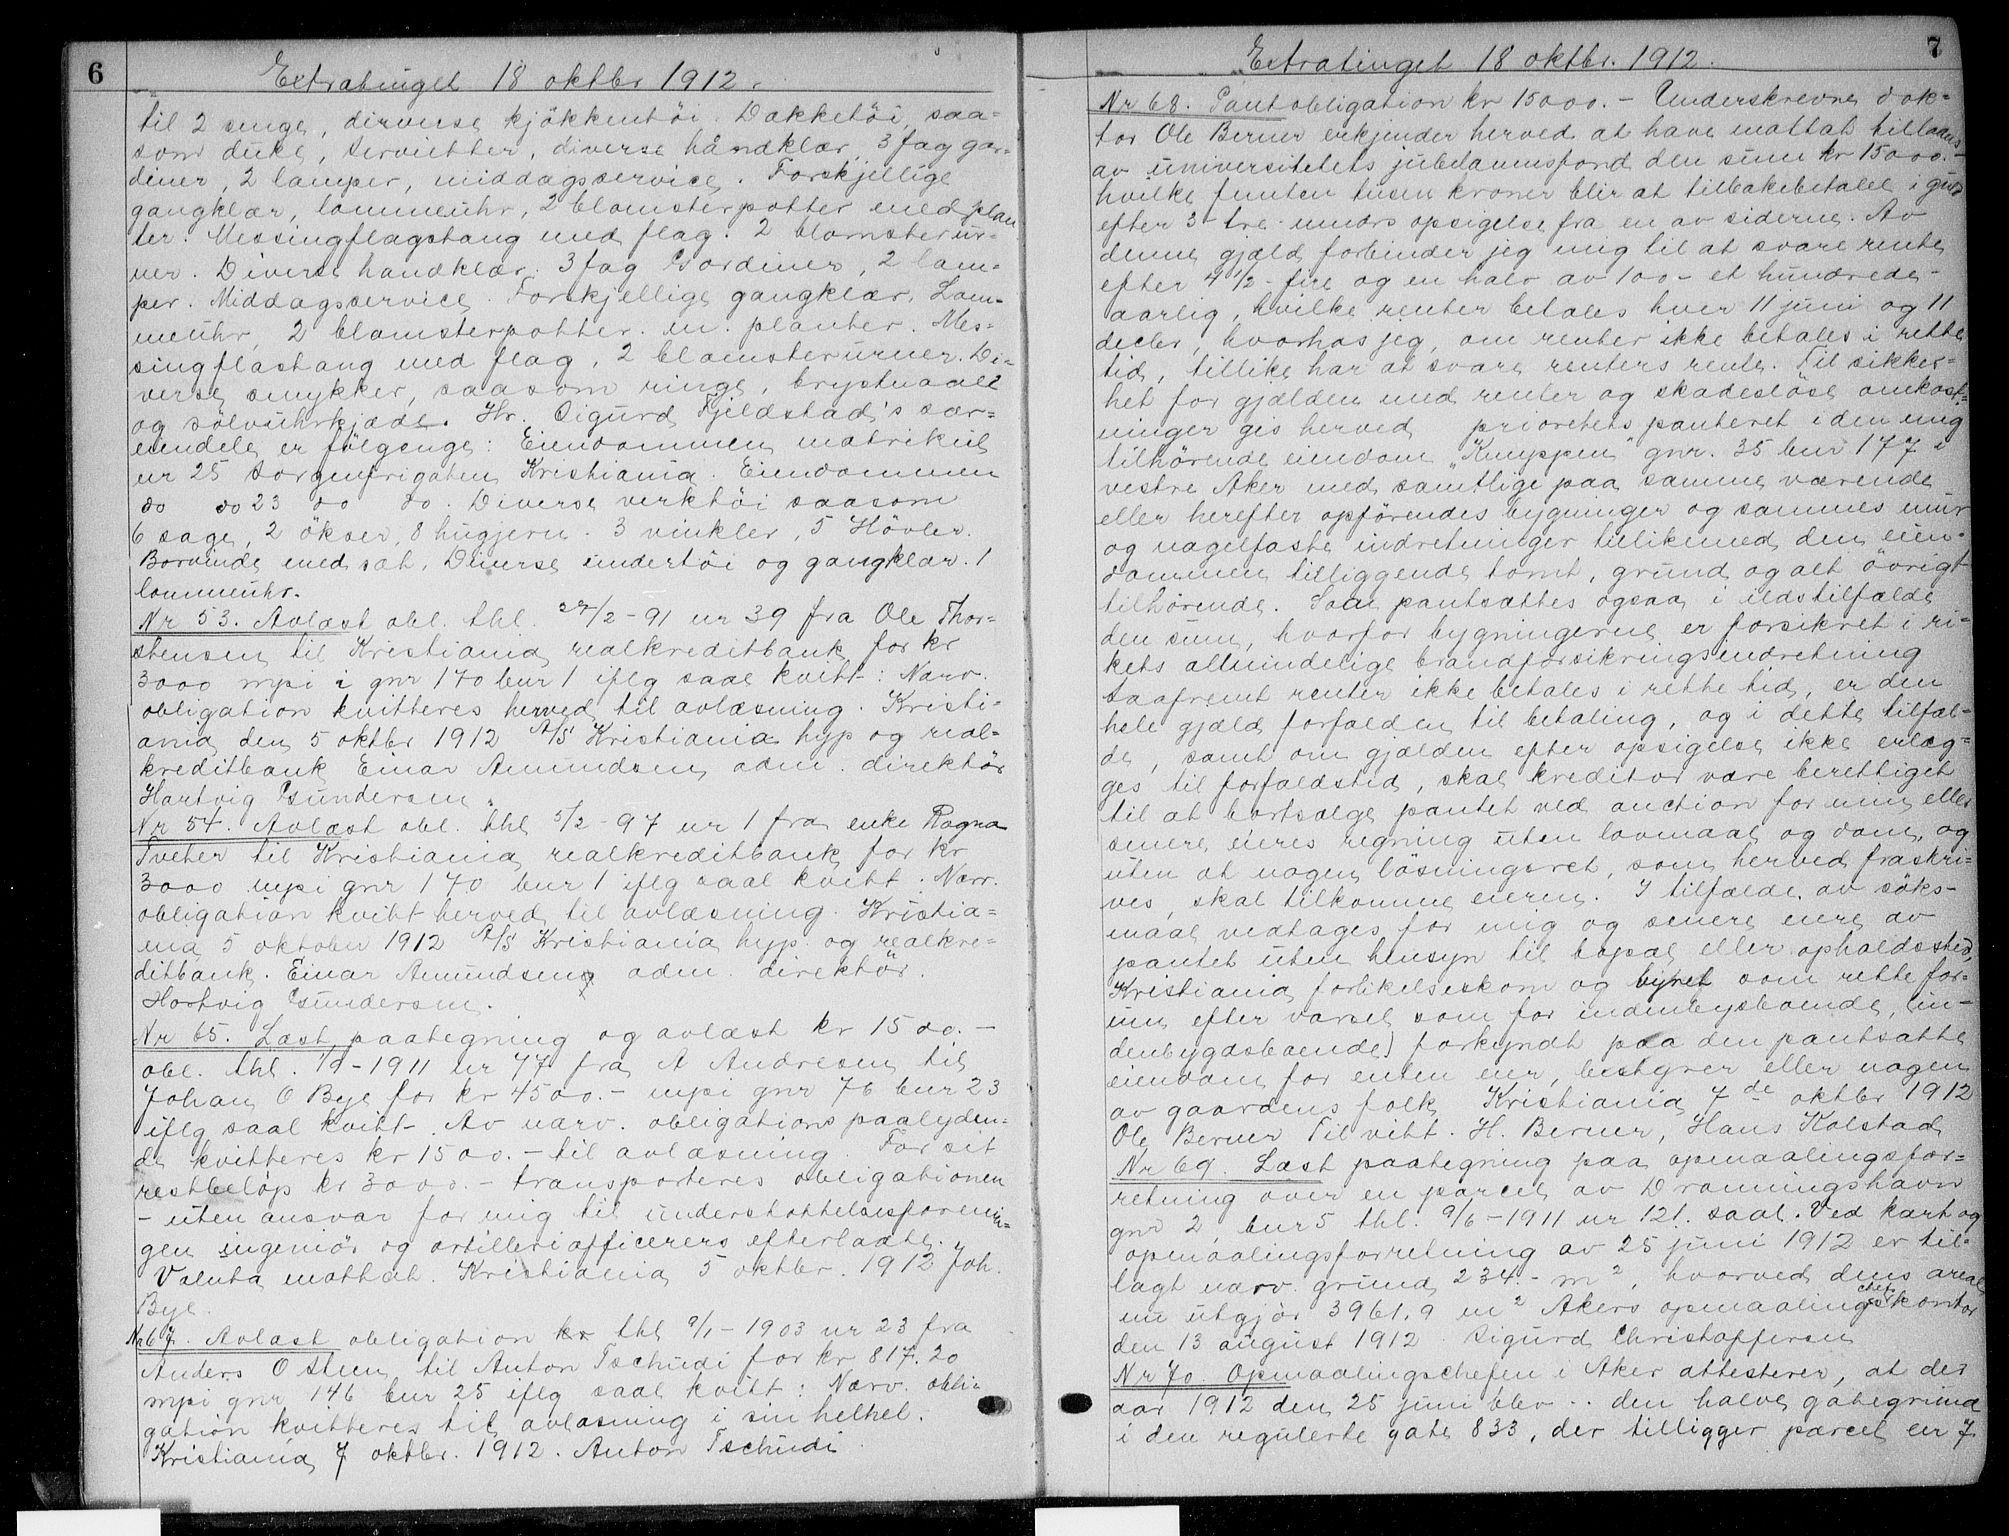 6
Extratinget 18 oktbr 1912.
til 2 senge, dirverse kjökkentöi. Dækketöi, saa-
som duke, servietter, diverse håndklær, 3 fag gar-
diner, 2 lamper, middagsservice. Forskjellige
gangklær, lommeuhr, 2 blomsterpotter med plan
ter. Messingflagstang med flag. 2 blomsterur-
ner. Diverse handklær. 3 fag Gardiner, 2 lam-
per. Middagsservice. Forskjellige gangklær. Lom-
meuhr, 2 blomsterpotter m. planter. Mes-
singflastang med flag, 2 blomsterurner. Di-
verse smykker, saasom ringe, brystnaale
og sölvuhrkjæde. Hr. Sigurd Fjeldstad's sær-
eiendele er fölgenge: Eiendommen matrikul
nr 25 Sorgenfrigaten Kristiania. Eiendommen
do do 23 do do. Diverse verktöi saasom
6 sage, 2 ökser, 8 hugjern. 3 vinkler, 5 Hövler.
Borvinde med sat. Diverse undertöi og gangklær. 1
lommeuhr.
Nr 53. Avlæst obl. thl. 27/2-91 nr 39 fra Ole Thor-
stensen til Kristiania realkreditbank for kr
3000 mpi i gnr 170 bnr 1 iflg saal kvitt: Nærv.
obligation kvitteres herved til avlæsning. Kristi-
ania den 5 oktbr 1912 A/S Kristiania hyp og real-
kreditbank Einar Amundsen adm. direktör
Hartvig Gundersen.
Nr 54. Avlæst obl. thl 5/2-97 nr 1 fra enke Ragna
Tveter til Kristiania realkreditbank for kr
3000 mpi gnr 170 bnr 1 iflg saal kvitt. Nærv.
obligation kvitt herved til avlæsning. Kristia-
nia 5 oktober 1912 A/S Kristiania hyp. og realkre-
ditbank. Einar Amundsen adm. direktör.
Hartvig Gundersen.
Nr 65. Læst paategning og avlæst kr 1500.-
obl. thl. 1/9-1911 nr 77 fra A Andresen til
Johan O Bye for kr 4500.- mpi gnr 76 bnr 23
iflg saal kvitt. Av nærv. obligations paalyden-
de kvitteres kr 1500.- til avlæsning. For sit
restbelöp kr 3000.- transporteres obligationen
- uten ansvar for mig til understöttelsesforenin-
gen ingeniör og artilleriofficerers efterladte.
Valuta mottat. Kristiania 5 oktbr. 1912 Joh.
Bye.
Nr 67. Avlæst obligation kr thl 9/1-1903 nr 23 fra
Anders O Steen til Anton Tschudi for kr 817.20
mpi gnr 146 bnr 25 iflg saal kvitt: Nærv. obli-
gation kvitteres til avlæsning i sin helhet.
Kristiania 7 oktbr. 1912. Anton Tschudi
7
Extratinget 18 oktbr. 1912.
Nr 68. Pantobligation kr 15000.- Underskrevne dok-
tor Ole Berner erkjender herved at have mottat tillaans
av universitetets jubelæumsfond den sum kr 15000.-
hvilke femten tusen kroner blir at tilbakebetale i guld
efter 3 - tre - mndrs opsigelse fra en av siderne. Av
denne gjæld forbinder jeg mig til at svare rente
efter 4 1/2 - fire og en halv av 100 - et hundrede -
aarlig, hvilke renter betales hver 11 juni og 11
decbr, hvorhos jeg, om renter ikke betales i rette
tid, tillike har at svare renters rente. Til sikker-
het for gjælden med renter og skadeslöse omkost-
ninger ges herved prioretets panteret i den mig
tilhörende eiendom "Knuppen" gnr. 35 bnr 177 i
vestre Aker med samtlige paa samme værende
eller herefter opförendes bygninger og sammes mur
og nagelfaste indretninger tillikemed den eien-
dommen tilliggende tomt, grund og alt övrigt
tilhörende. Saal pantsættes ogsaa i ildstilfælde
den sum, hvorfor bygningerne er forsikret i ri-
kets almindelige brandforsikringsindretning
Saafremt renter ikke betales i rette tid, er den
hele gjæld forfalden til betaling, og i dette tilfæl-
de, samt om gjælden efter opsigelse ikke erlæg-
ges til forfaldstid, skal kreditor være berettiget
til at bortsælge pantet ved auction for min eller
senere eieres regning uten lovmaal og dom, og
uten at nogen lösningsret, som herved fraskri-
ves, skal tilkomme eieren. I tilfælde av söks-
maal vedtages for mig og senere eiere av
pantet uten hensyn til bopæl eller opholdssted,
Kristiania forlikelseskom og byret som rette for-
um efter varsel som for indenbysboende, (in-
denbygdsboende) forkyndt paa den pantsatte
eiendom for enten eier, bestyrer eller nogen
av gaardens folk Kristiania 7de oktbr 1912
Ole Berner Til vitt. H. Berner, Hans Kolstad
Nr 69. Læst paategning paa opmaalingsfor-
retning over en parcel av Dronningshavn
gnr 2, bnr 5 thl. 9/6-1911 nr 121. saal. Ved kart og
opmaalingsforretning av 25 juni 1912 er til-
lagt nærv. grund 234.- m2, hvorved dens areal
nu utgjör 3961,9 m2 Akers opmaalingschefskontor
den 13 august 1912. Sigurd Christoffersen
Nr 70. Opmaalingschefen i Aker attesterer, at der
aar 1912 den 25 juni blev .. den halve gategrund
i den regulerte gate 833, der tilligger parcel nr 7